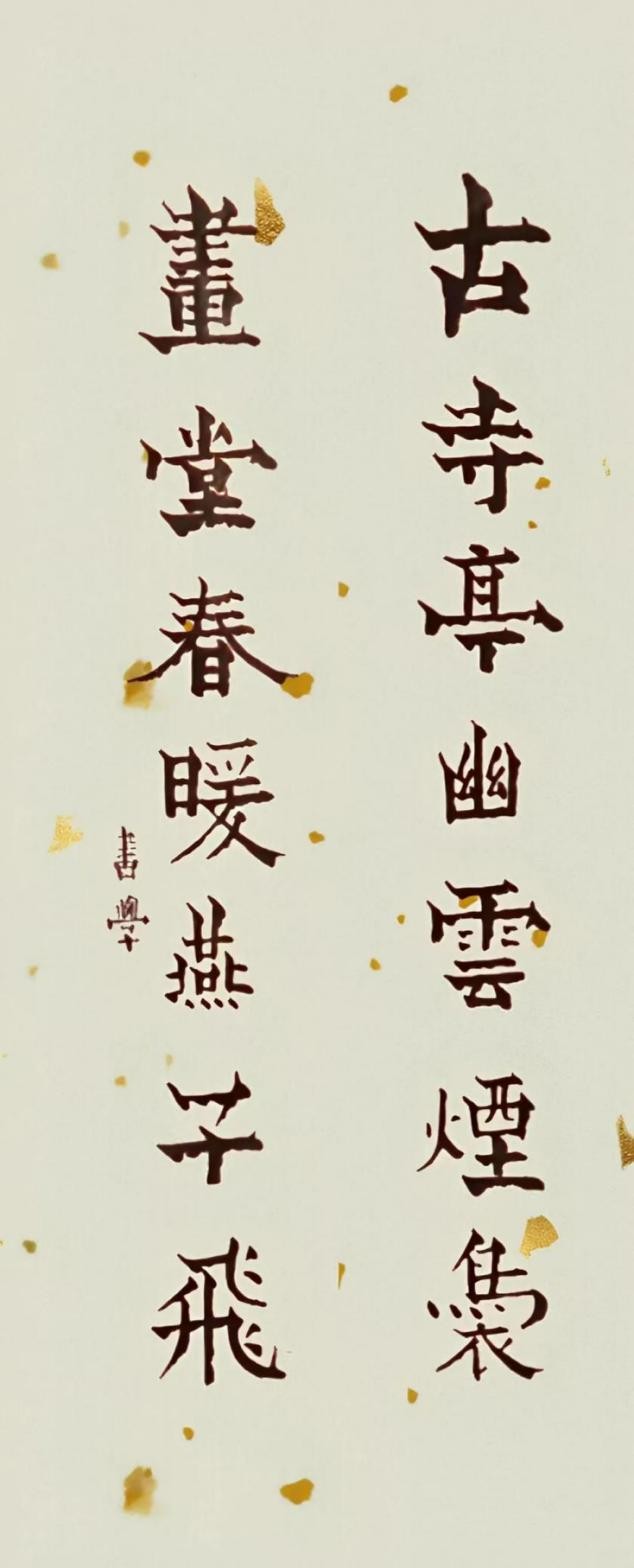 古寺亭幽雲煙裊
畫堂春暖燕子飛
書學